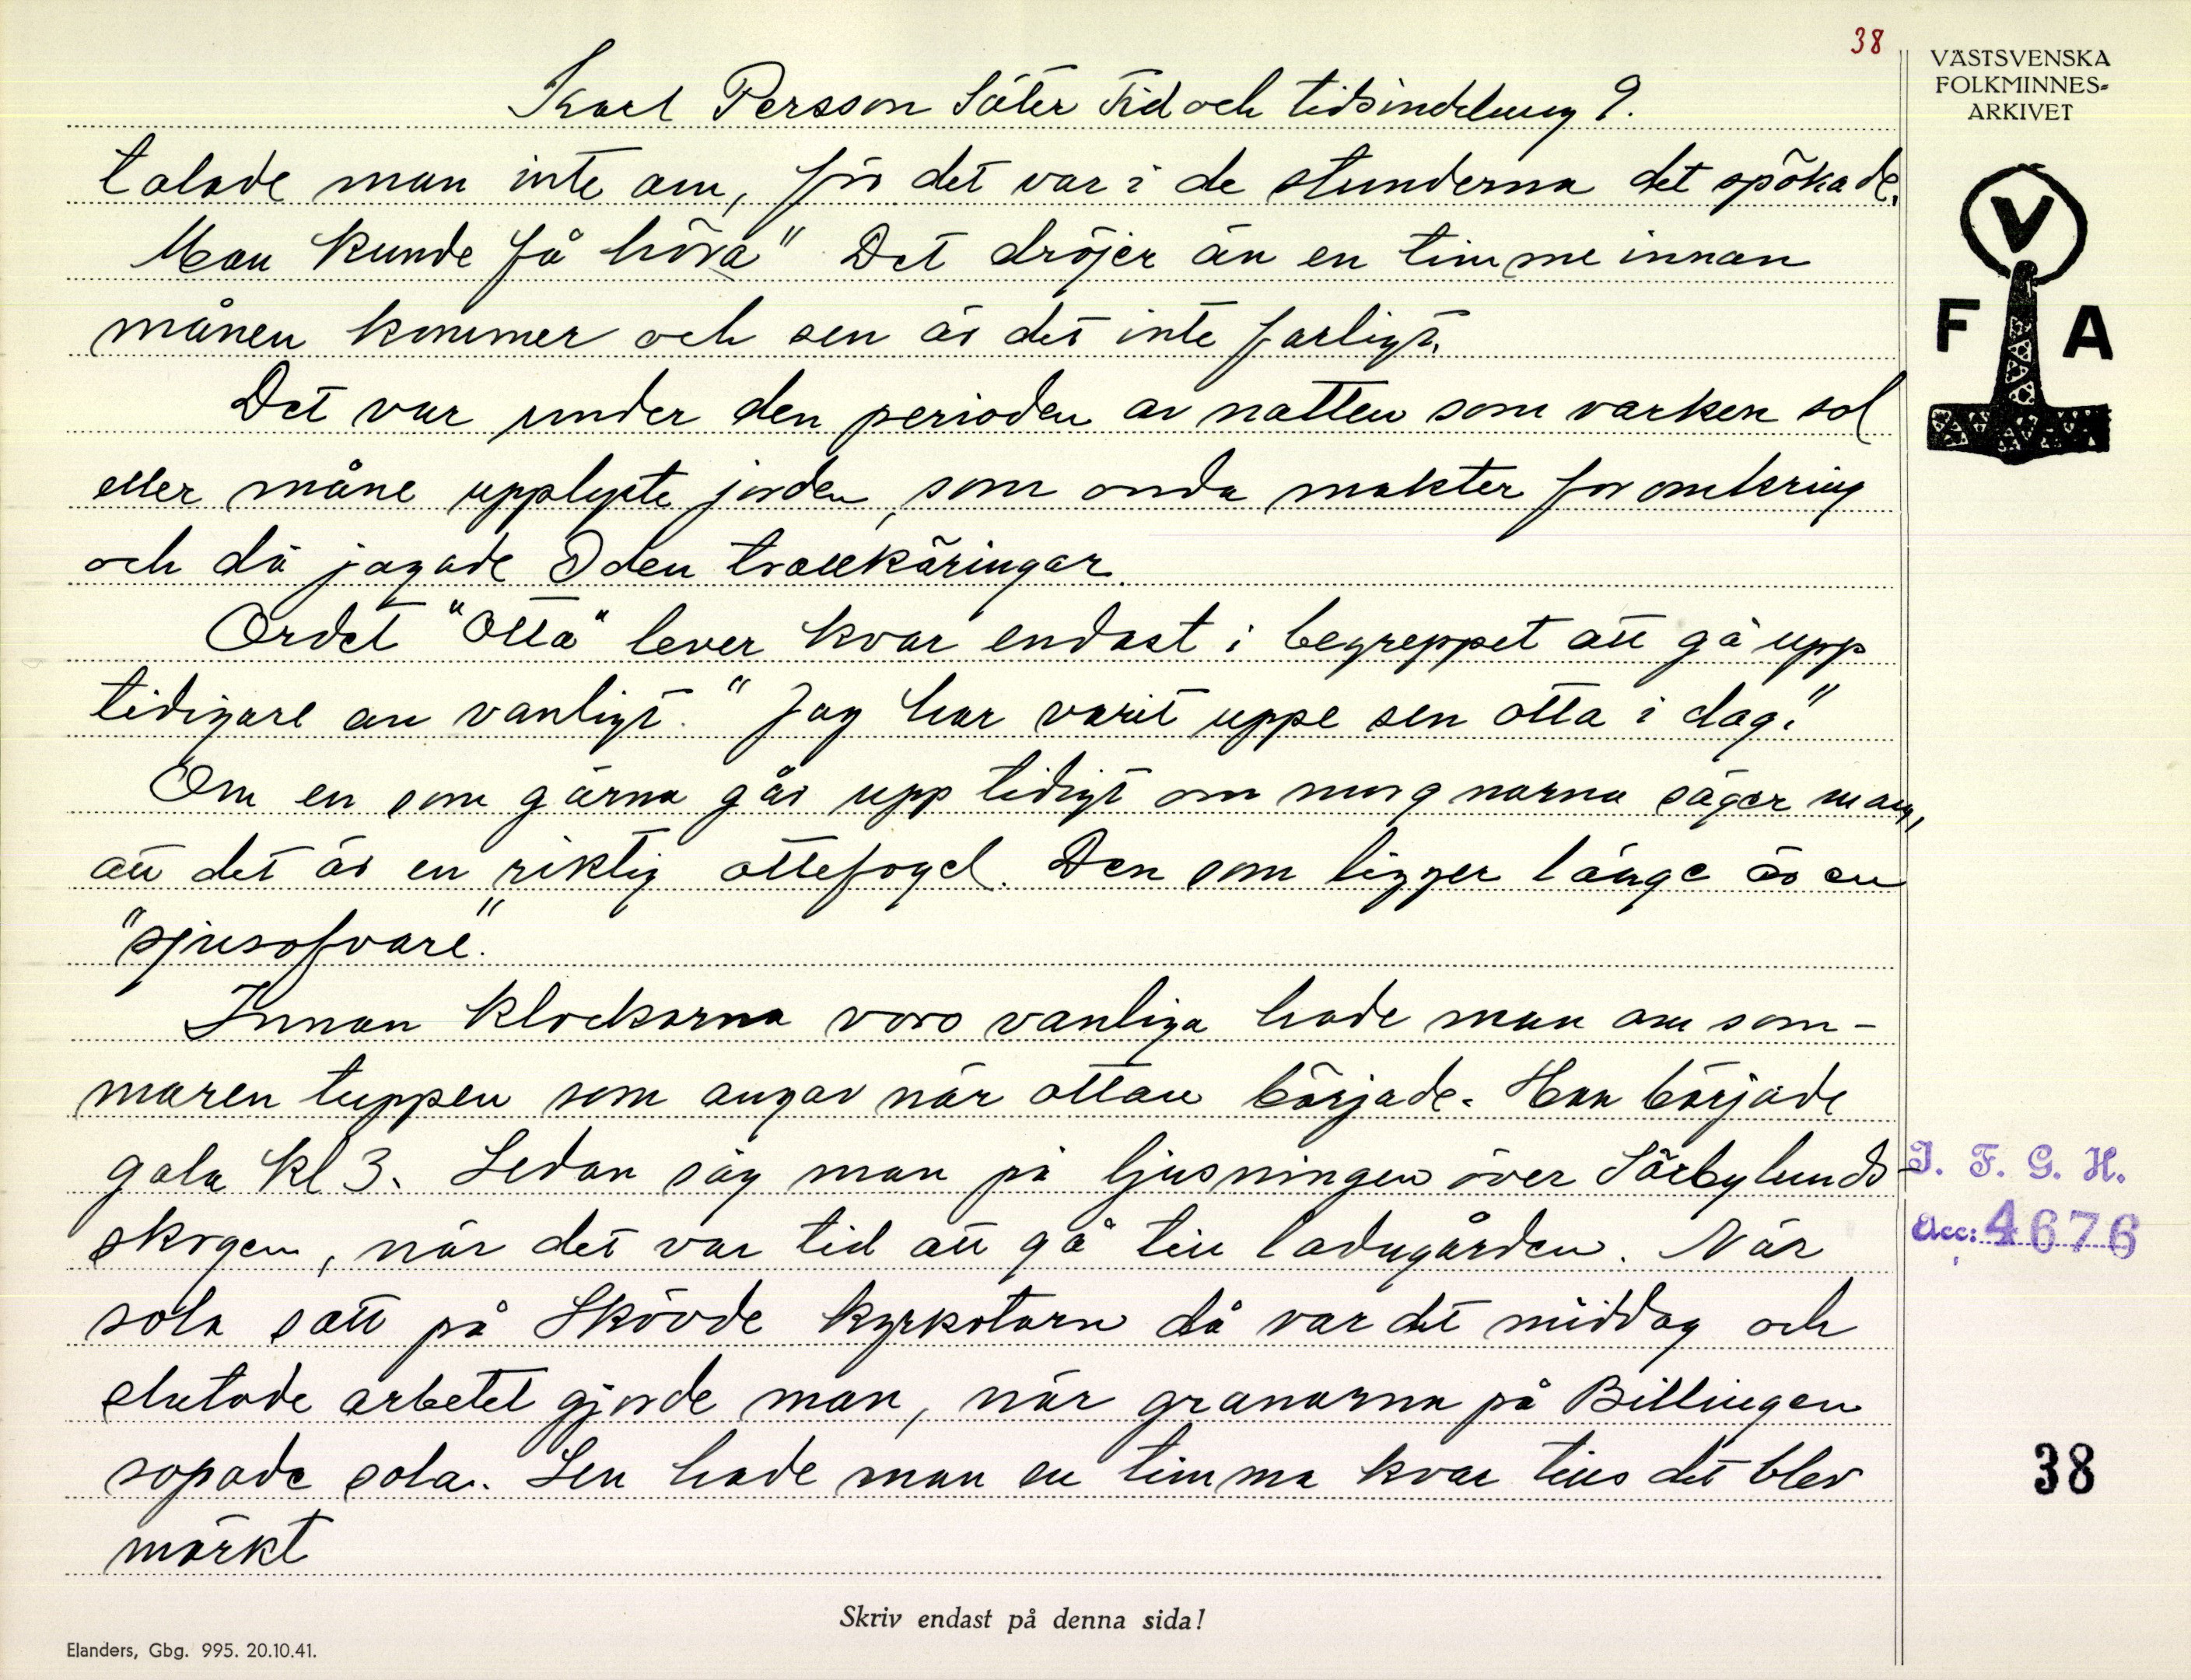 38
VÄSTSVENSKA
FOLKMINNES=
ARKIVET
Karl Persson Säter Tid och tidsindelning 9.
talade man inte om, för det var i de stunderna det spökade.
Man kunde få höra" Det dröjer än en timme innan
månen kommer och sen är det inte farligt.
Det var under den perioden av natten som varken sol
eller måne upplyste jorden, som onda makter for omkring
och då jagade Oden trollkäringar.
Ordet "Otta" lever kvar endast i begreppet att gå upp
tidigare än vanligt. "Jag har varit uppe sen otta i dag."
Om en som gärna går upp tidigt om morgnarna säger man,
att det är en riktig ottefogel. Den som ligger länge är en
"sjusofvare".
Innan klockorna voro vanliga hade man om som-
maren tuppen som angav när ottan började. Han började
gala kl 3. Sedan såg man på ljusningen över Sörbylunds-
skogen, när det var tid att gå till ladugården. När
sola satt på Skövde kyrkotorn då var det middag och
slutade arbetet gjorde man, när granarna på Billingen
sopade sola. Sen hade man en timma kvar tills det blev
mörkt
V
F A
I. F. G. H.
Acc: 4676
38
Skriv endast på denna sida!
Elanders, Gbg. 995. 20.10.41.